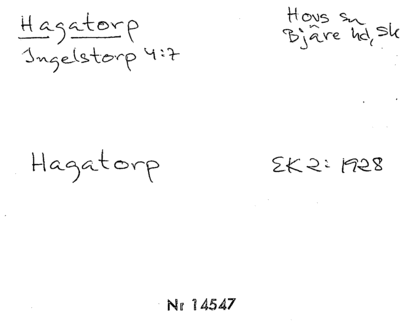 Hagatorp
Ingelstorp 4:7
Hovs sn
Bjäre hd, Sk
Hagatorp
EK 2: 1928
Nr 14547